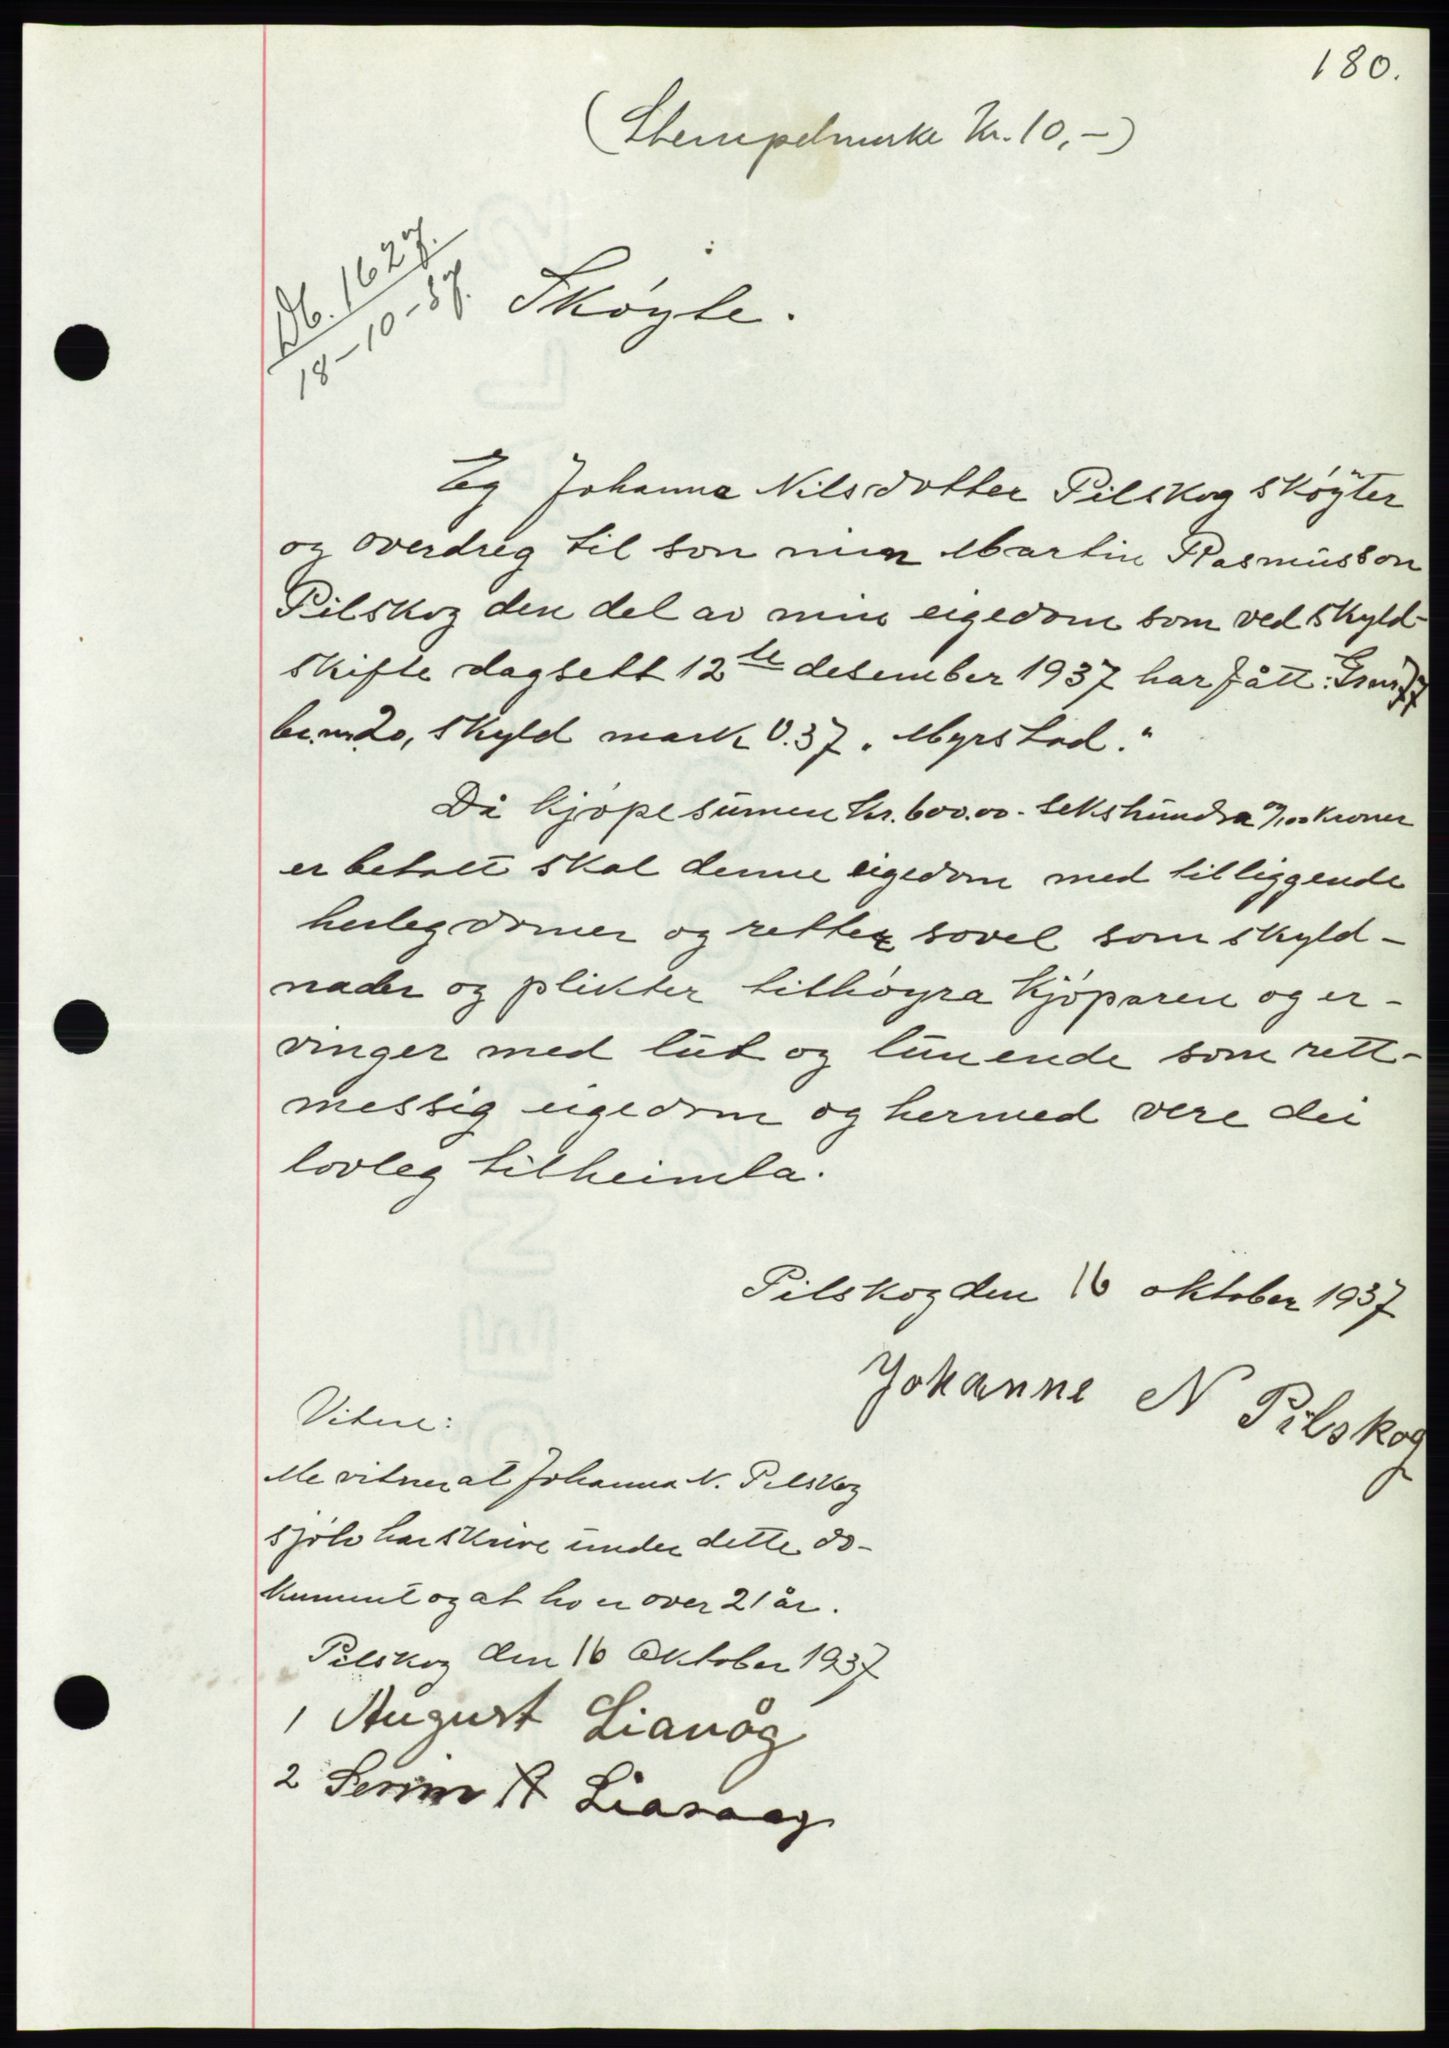 180.
(Stempelmerke Kr. 10,-)
Db. 1627.
18-10-37.
Skøyte.
Eg Johanna Nilsdotter Pilskog skøyter
og overdreg til son min Martin Rasmusson
Pilskog den del av min eigedom som ved skyld-
skifte dagsett 12te desember 1937 har fått: Gnr. 77
br.nr. 20, skyld mark 0.37 „Myrstad."
Då kjøpesumen kr. 600.00 - sekshundra 0/100 kroner
er betalt skal denne eigedom med tilliggende
herlegdomer og retter sovel som skyld-
nader og plikter tilhøyra kjøparen og er-
vinger med lut og lunende som rett-
messig eigedom og hermed vere dei
lovleg tilheimla.
Pilskog den 16 oktober 1937
Johanne N Pilskog
Vitne:
Me vitner at Johanna N. Pilskog
sjølv har skrive under dette do-
kument og at ho er over 21 år.
Pilskog den 16 Oktober 1937
1 August Liavåg
2 A Liavaag